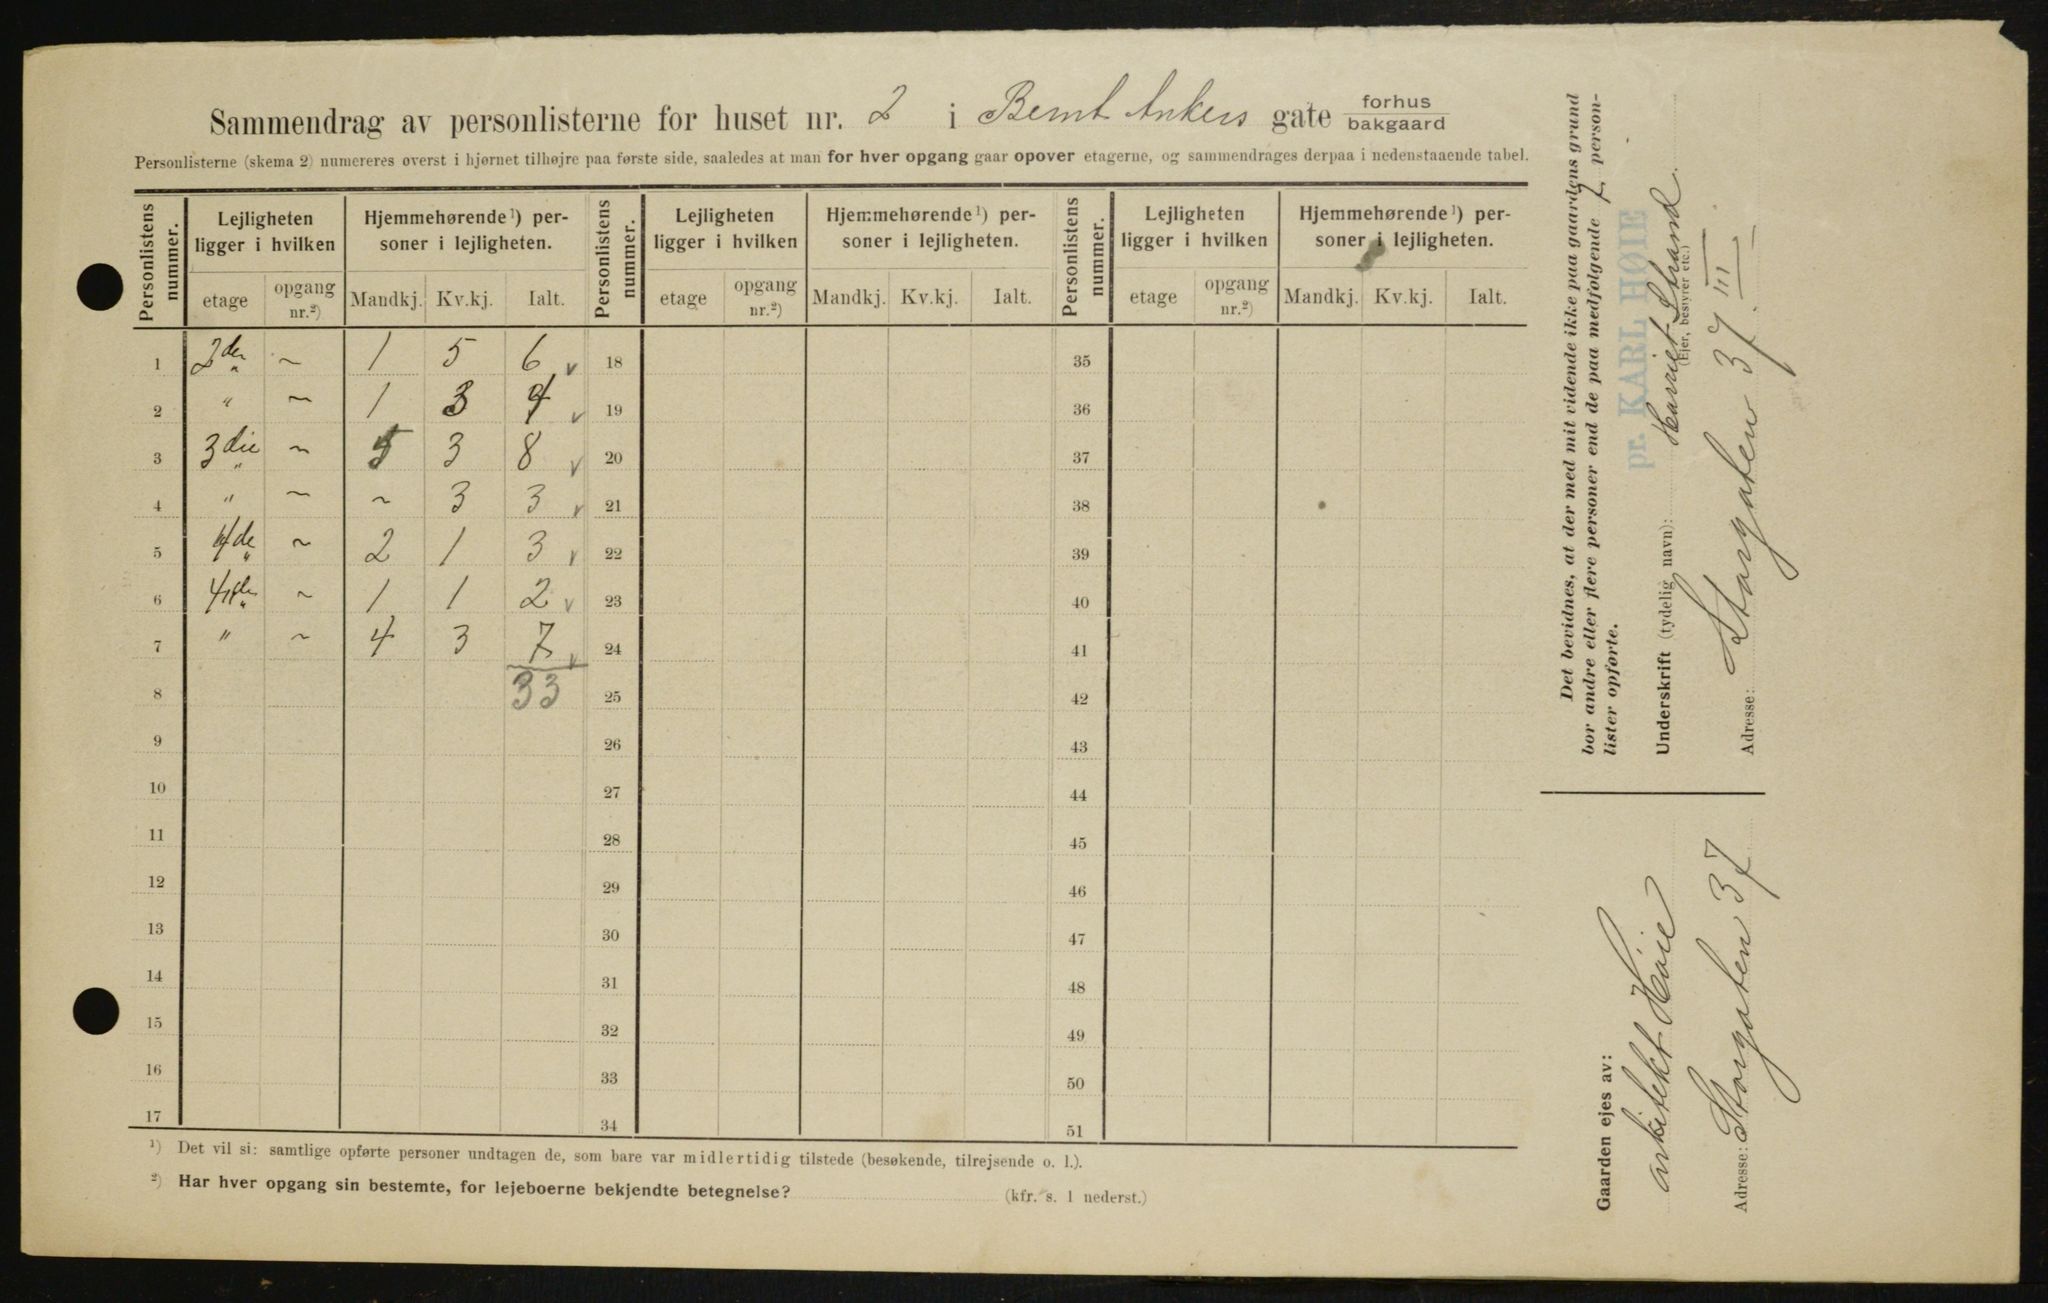 Sammendrag av personlisterne for huset nr. 2 i Bernt Ankers gate forhus
bakgaard
Personlisterne (skema 2) numereres øverst i hjørnet tilhøjre paa første side, saaledes at man for hver opgang gaar opover etagerne, og sammendrages derpaa i nedenstaaende tabel.
Personlistens nummer. Lejligheten ligger i hvilken Hjemmehørende ¹) personer i lejligheten. Personlistens nummer. Lejligheten ligger i hvilken Hjemmehørende ¹) personer i lejligheten. Personlistens nummer. Lejligheten ligger i hvilken Hjemmehørende ¹) personer i lejligheten.
etage opgang nr.²) Mandkj. Kv.kj. Ialt. etage opgang nr.²) Mandkj. Kv.kj. Ialt. etage opgang nr.²) Mandkj. Kv.kj. Ialt.
1 2den " ~ 1 5 6 v 18 35
2 " ~ 1 3 4 v 19 36
3 3die " ~ 5 3 8 v 20 37
4 " ~ ~ 3 3 v 21 38
5 4de " ~ 2 1 3 v 22 39
6 4de " ~ 1 1 2 v 23 40
7 " ~ 4 3 7 v 24 41
8 33 25 42
9 26 43
10 27 44
11 28 45
12 29 46
13 30 47
14 31 48
15 32 49
16 33 50
17 34 51
¹) Det vil si: samtlige opførte personer undtagen de, som bare var midlertidig tilstede (besøkende, tilrejsende o. l.).
²) Har hver opgang sin bestemte, for lejeboerne bekjendte betegnelse? (kfr. s. 1 nederst.)
Det bevidnes, at der med mit vidende ikke paa gaardens grund
bor andre eller flere personer end de paa medfølgende 7 person-
lister opførte.
pr. KARL HØIE
Underskrift (tydelig navn): Harriet Strand.
(Ejer, bestyrer etc.)
Adresse: Storgaten 37. III
Gaarden ejes av:
arkitekt Höie
Adresse: Storgaten 37